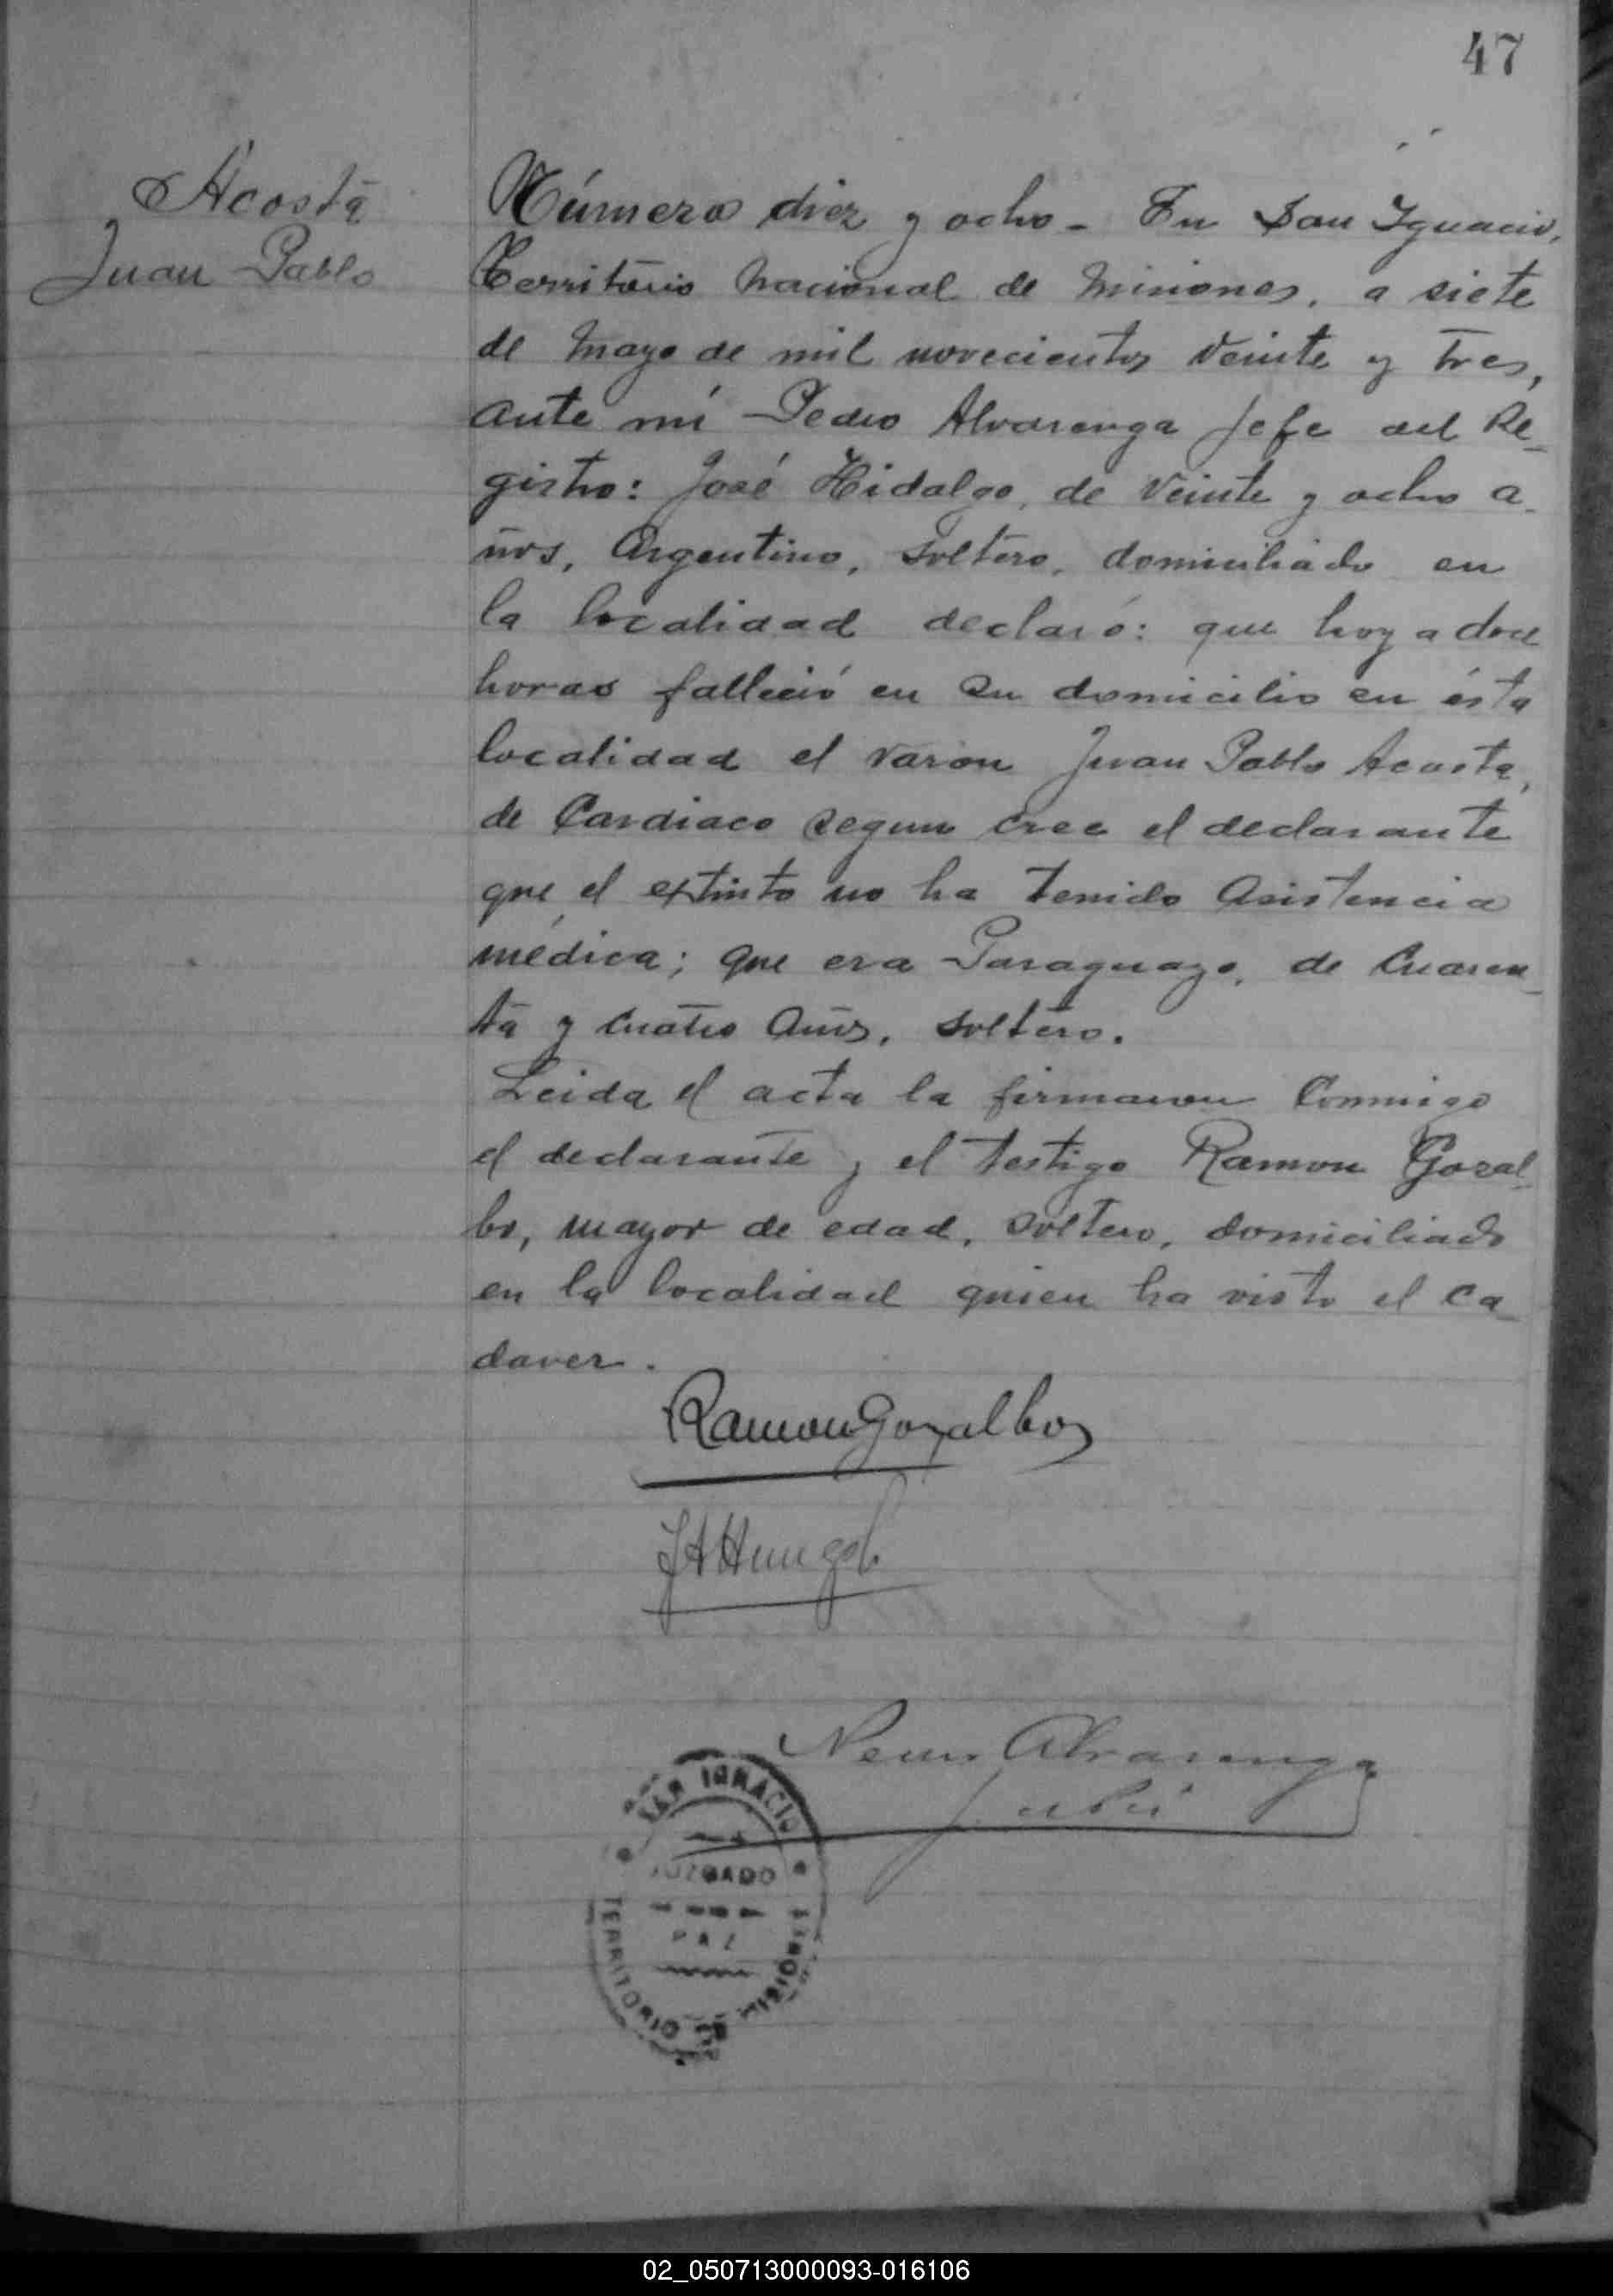 47
Acosta
Juan Pablo
Número diez y ocho - En San Ignacio,
Territorio Nacional de Misiones, a siete
de Mayo de mil novecientos veinte y tres,
ante mí Pedro Alvarenga Jefe del Re-
gistro: José Hidalgo, de veinte y ocho a-
ños, Argentino, soltero, domiciliado en
la localidad declaró: que hoy a doce
horas falleció en su domicilio en ésta
localidad el varon Juan Pablo Acosta,
de Cardiaco segun cree el declarante
que el extinto no ha tenido asistencia
médica; que era Paraguayo, de cuaren-
ta y cuatro años, soltero.
Leida el acta la firmaron conmigo
el declarante y el testigo Ramon Gozal-
bo, mayor de edad, soltero, domiciliado
en la localidad quien ha visto el ca-
daver.
Ramon Gozalbo
Alvarenga
SAN IGNACIO
JUZGADO
PAZ
TERRITORIO DE MISIONES
02_050713000093-016106